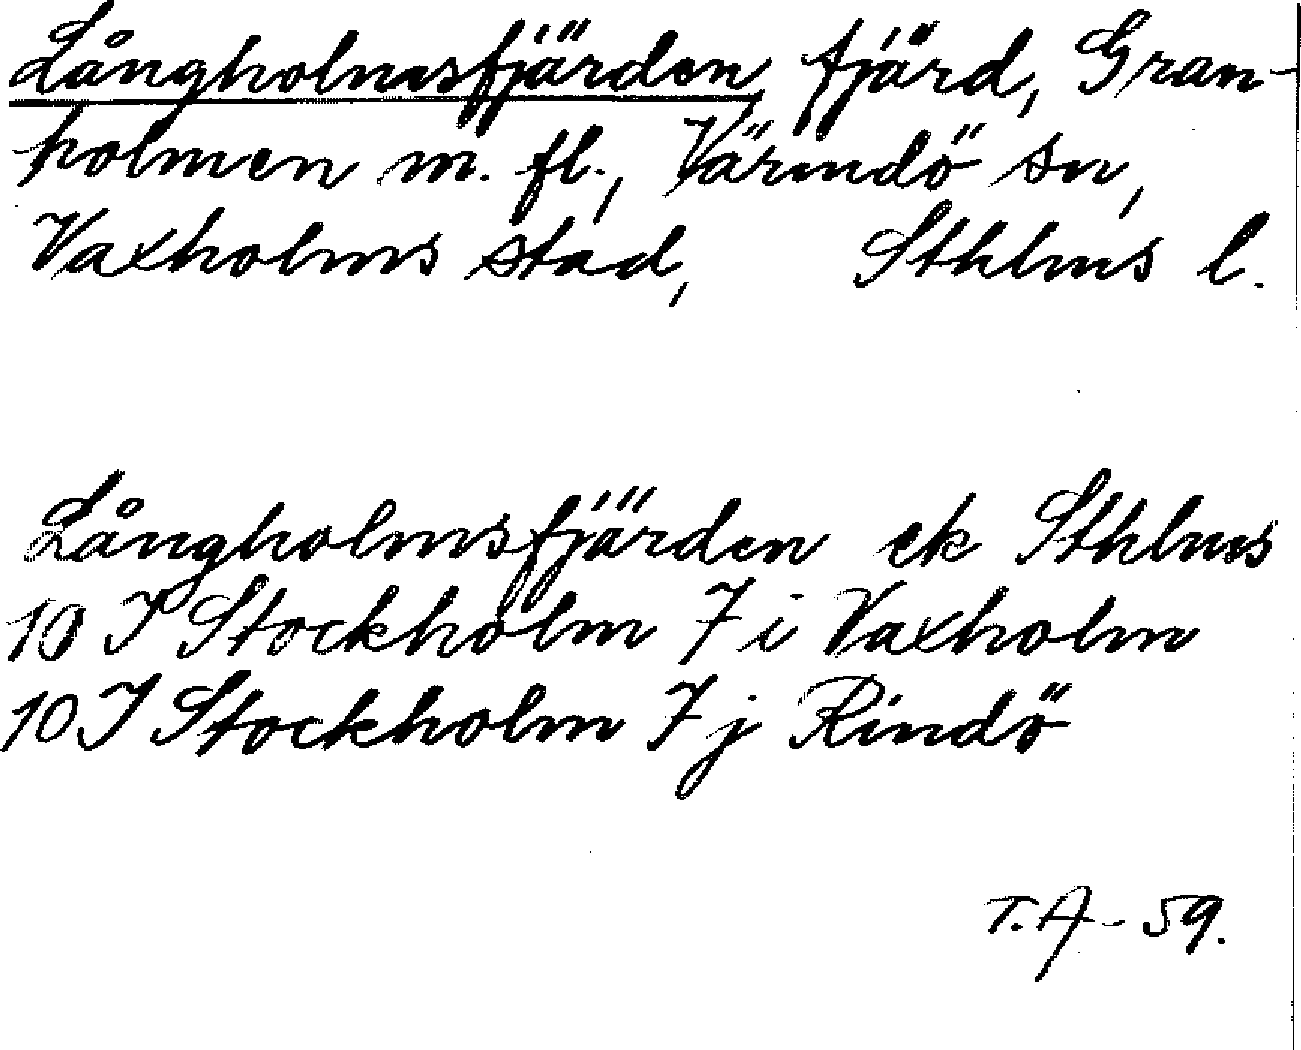 Långholmsfjärden, fjärd, Gran-
holmen m. fl., Värmdö sn,
Vaxholms stad, Sthlms l.
Långholmsfjärden ek Sthlms
10 I Stockholm 7 i Vaxholm
10 I Stockholm 7 j Rindö
T.A - 59.